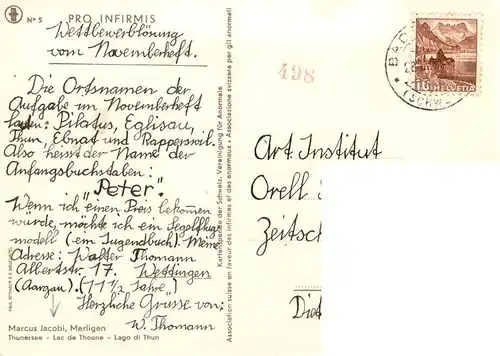 Nº 5 PRO INFIRMIS
Wettbewerblösung
vom Novemberheft.
Die Ortsnamen der
Aufgabe im Novemberheft
lauten: Pilatus, Eglisau,
Thun, Ebnat und Rapperswil.
Also heisst der Name der
Anfangsbuchstaben:
"Peter".
Wenn ich einen Preis bekommen
würde, möchte ich ein Segelflug-
modell (ein Jugendbuch). Meine
Adresse: Walter Thomann
Albertstr. 17. Wettingen
(Aargau). (11½ Jahre)
Herzliche Grüsse von:
W. Thomann
Marcus Jacobi, Merligen
Thunersee - Lac de Thoune - Lago di Thun
Kartenspende der Schweiz. Vereinigung für Anormale
Association suisse en faveur des infirmes et des anormaux • Associazione svizzera per gli anormali
498
BAD
(SCHW
10 HELVETIA
Art. Institut
Orell
Zeitsch
Diet